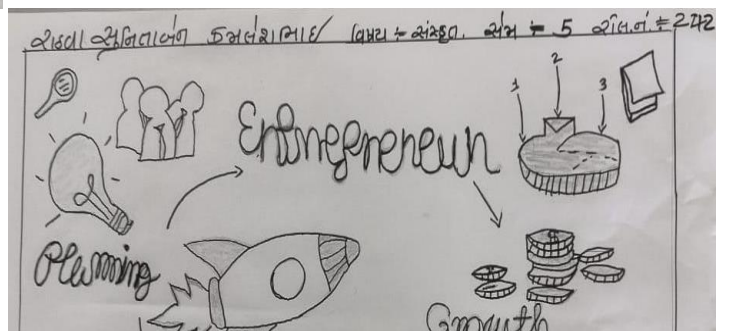 રાઠવા સુનિતાબેન કમલેશભાઈ વિષય :- સંસ્કૃત. સેમ :- 5 રોલનં :- 242
1 2 3
Entrepreneur
Planning
$
Growth